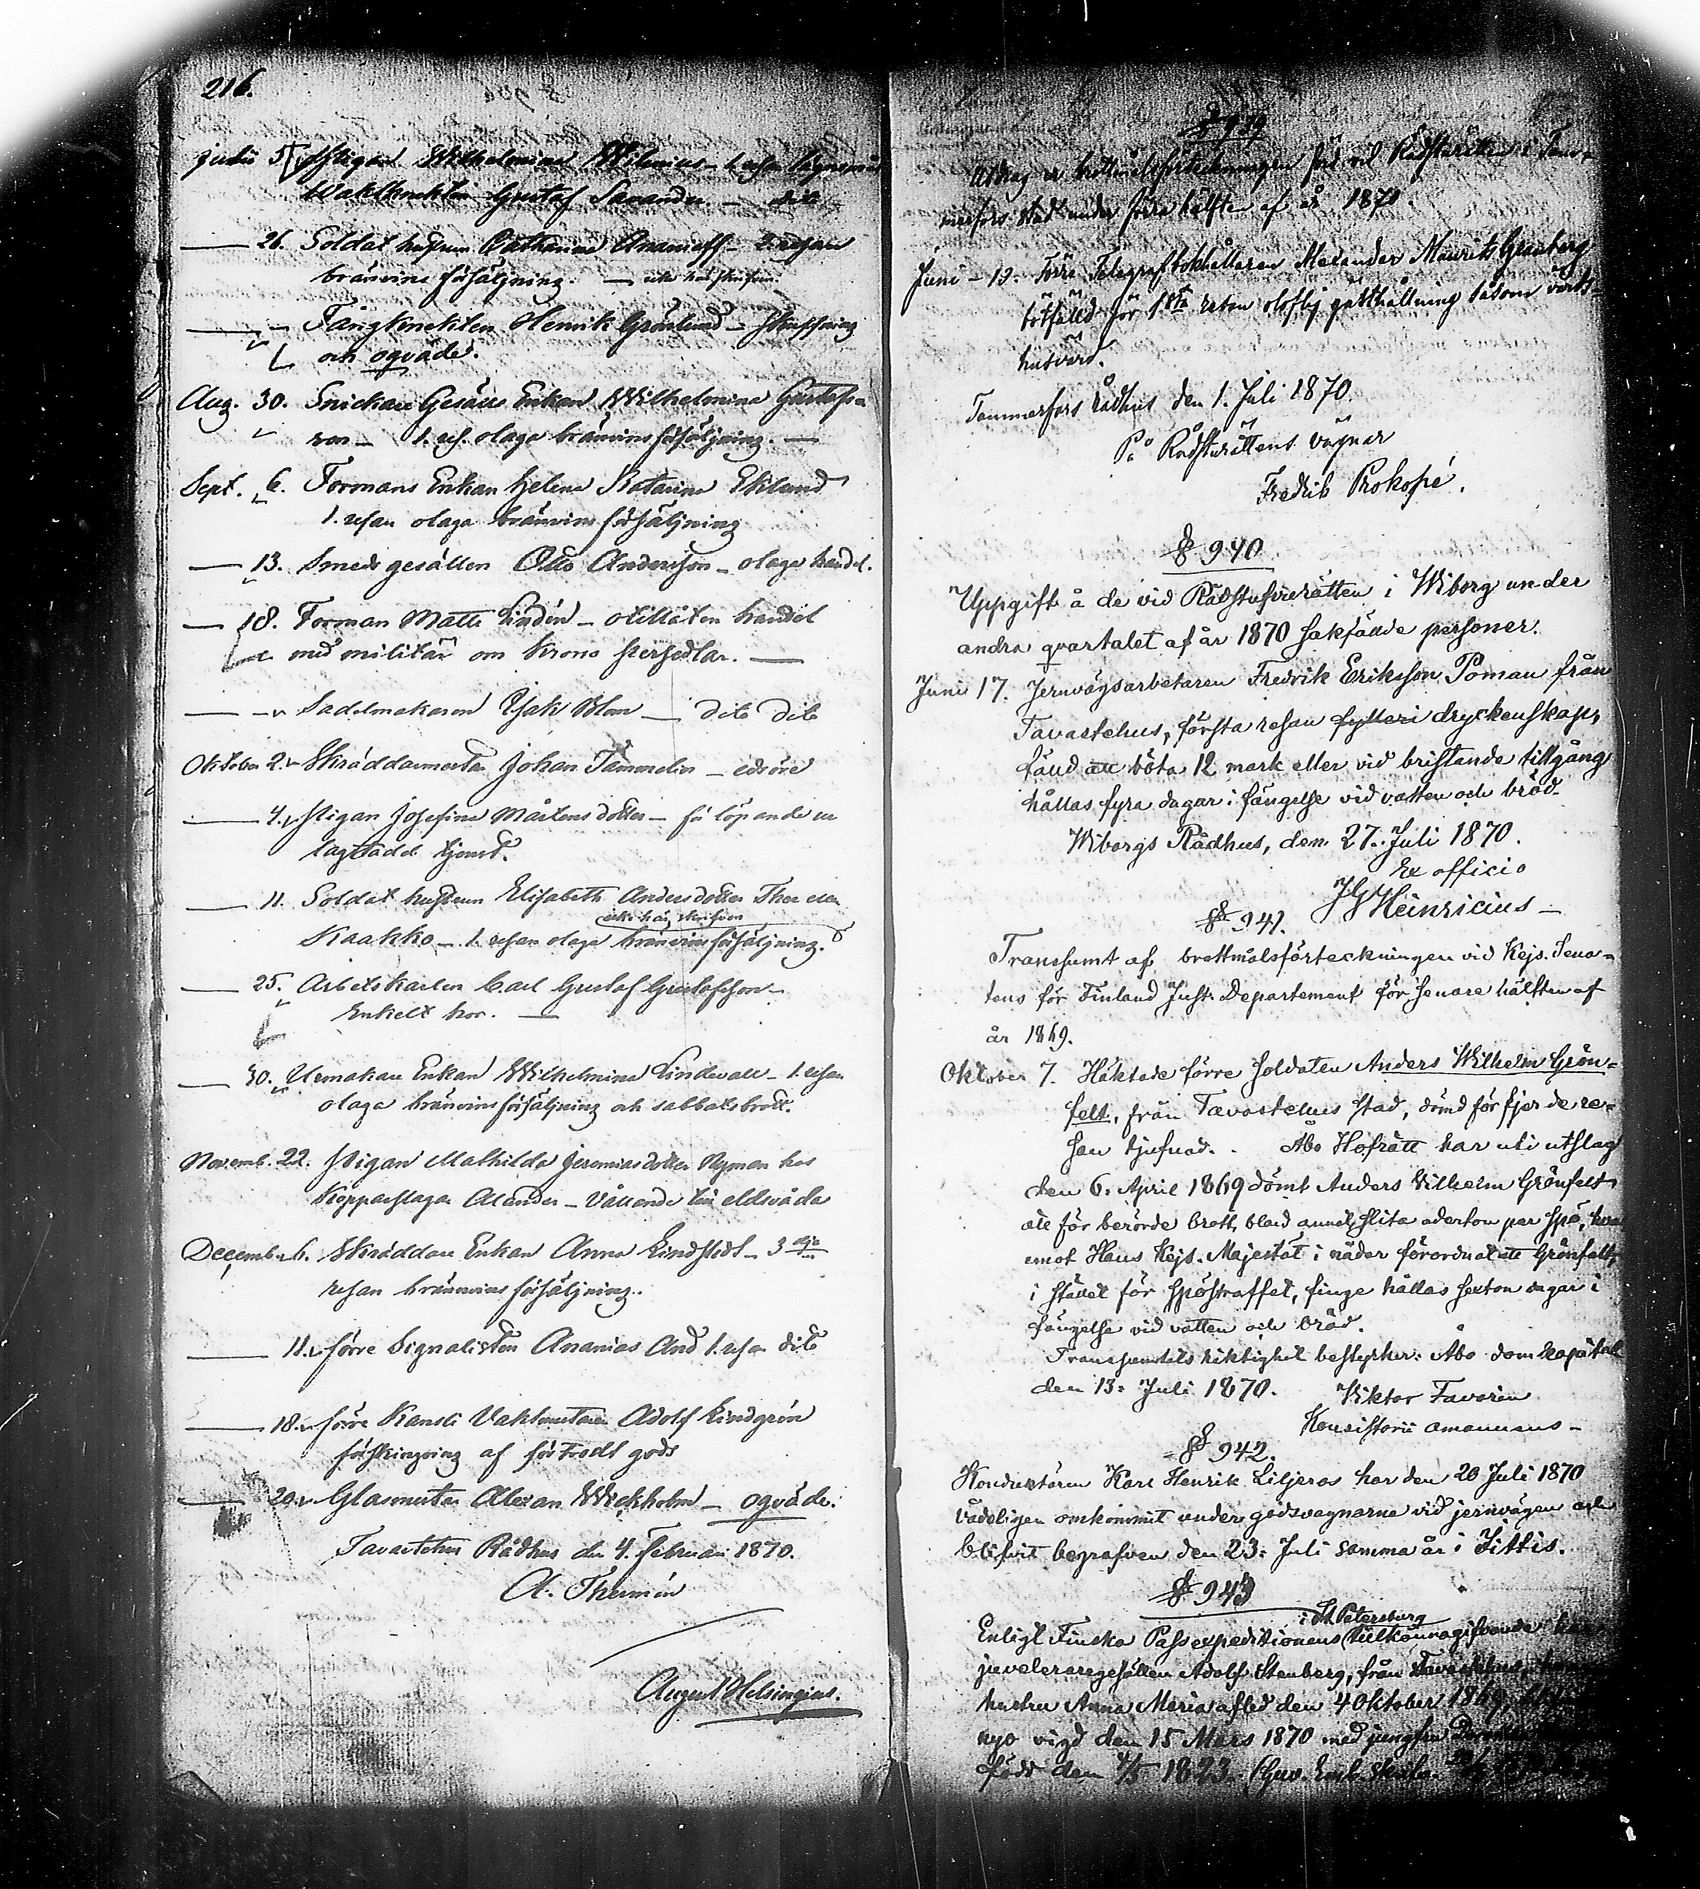 216.
Julii 5. Pigan Wilhelmina Wilenius - 1. resan lägersmål
Waktknekten Gustaf Savander - dito
— 26. Soldat hustrun Catharina Ananieff - 2. resan
bränvins försäljning. —
— - Fångknekten Henrik Grönlund - straffning
och oqväde.
Aug. 30. Snickare Gesälls Enkan Wilhelmina Gustafs-
son - 1. res. olaga bränvinsförsäljning. —
Sept. 6. Formans Enkan Helena Katarina Eklund
1. resan olaga bränvins försäljning
— 13. Smeds gesällen Otto Andersson - olaga handel.
— 18. Forman Matts Lindén - otillåten handel
med militär om Krono persedlar. —
— - Sadelmakaren Isak Blom - dito dito
Oktober 2. Skräddarmestar Johan Tammelin - edsöre
— 4. Pigan Josefina Mårtensdotter - förlöpande ur
lagstadd tjenst.
— 11. Soldat hustrun Elisabeth Andersdotter Ther eller
Kaakko - 1. resan olaga bränvinsförsäljning.
— 25. Arbetskarlen Carl Gustaf Gustafsson -
Enkelt hor. —
— 30. Urmakare Enkan Wilhelmina Lindevall - 1. resan
olaga bränvinsförsäljning och sabbatsbrott.
Novemb. 22. Pigan Mathilda Jeremiasdotter Nyman hos
Kopparslagar Alander - Vållande till eldsvåda
Decemb. 6. Skräddare Enkan Anna Lindstedt - 3 dje
resan bränvins försäljning.
— 11. förre Signalisten Ananias And 1. resan dito
— 18. förre Kansli Vaktmestaren Adolf Lindgrén
förskingring af förtrodt gods
— 20. Glasmestar Alexan Weckholm - oqväde.
Tavastehus Rådhus den 4. Februari 1870.
A. Thermén
August Helsingius.
§ 939
Utdrag ur brottmålsförteckningen förd vid Rådsturätten i Tam-
merfors stad under förra hälften af år 1870.
Juni - 13. Förre Telegrafbokhållaren Alexander Maurits Granberg
bötfälld för 1sta resan oloflig gästhållning såsom värds-
husvärd.
Tammerfors rådhus den 1. Juli 1870.
På Rådsturättens vägnar
Fredrik Prokopé.
§ 940
Uppgift å de vid Rådstufvurätten i Wiborg under
andra qvartalet af år 1870 sakfällde personer.
Juni 17. Jernvägsarbetaren Fredrik Eriksson Poman från
Tavastehus, första resan fylleri dryckenskap,
fälld att böta 12 mark eller vid bristande tillgång
hållas fyra dagar i fängelse vid vatten och bröd.
Wiborgs Rådhus, den 27. Juli 1870.
Ex officio
J G Heinricius -
§ 941.
Transumt af brottmålsförteckningen vid Kejs. Sena-
tens för Finland Just. Departement för senare hälften af
år 1869.
Oktober 7. Häktade förre soldaten Anders Wilhelm Grön-
felt, från Tavastehus stad, dömd för fjerde re-
san tjufnad. - Åbo Hofrätt har uti utslag
den 6. April 1869 dömt Anders Wilhelm Grönfelt
att för berörde brott, bland annat, slita aderton par spö, hvar-
emot Hans Kejs. Majestät i nåder förordnat att Grönfelt,
i stället för spöstraffet, finge hållas sexton dagar i
fängelse vid vatten och bröd.
Transumtets riktighet bestyrker: Åbo domkapitel
den 13. Juli 1870. Viktor Favorin
Konsistorii amanuens -
§ 942.
Konduktören Karl Henrik Liljeros har den 20 Juli 1870
vådeligen omkommit under godsvagnarne vid jernvägen och
blifvit begrafven den 23. Juli samma år i Iittis.
§ 943
Enligt Finska Passexpeditionens i St Petersburg tillkännagifvande har
juveleraregesällen Adolf Stenberg, från Tavastehus,
hustru Anna Maria afled den 4 Oktober 1869,
nyo vigd den 15 Mars 1870 med jungfru
född den 4/5 1823.